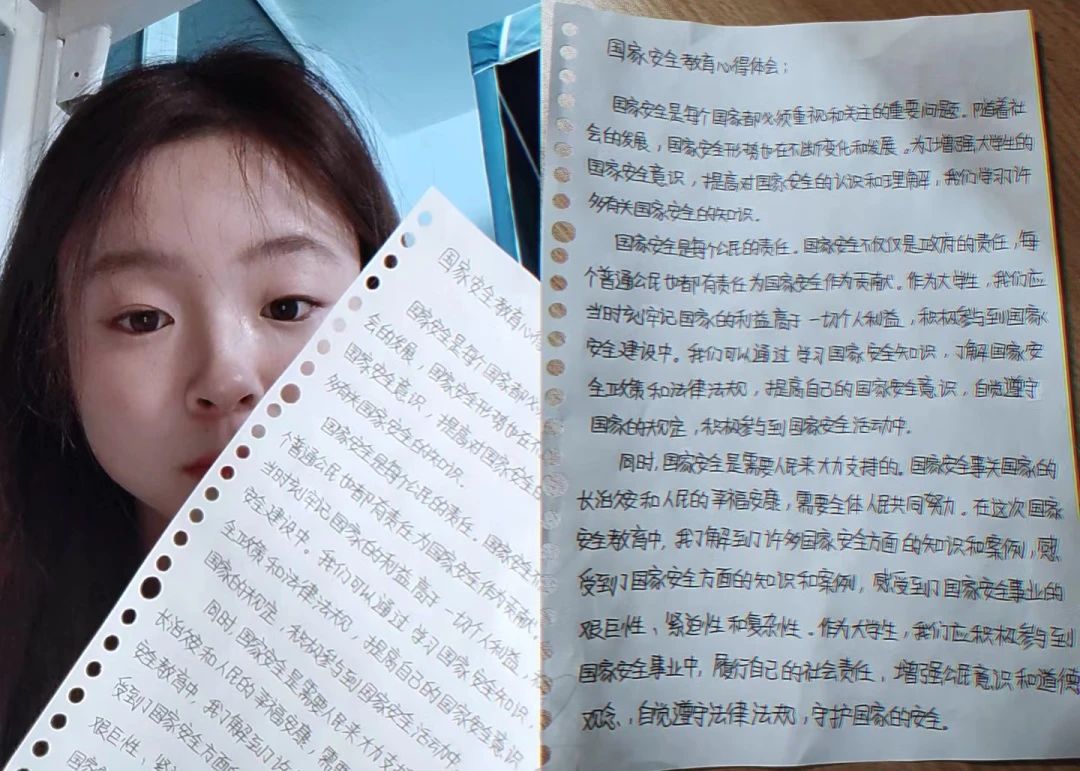 国家安全教育心得体会：
国家安全是每个国家都必须重视和关注的重要问题。随着社
会的发展，国家安全形势也在不断变化和发展。为了增强大学生的
国家安全意识，提高对国家安全的认识和理解，我们学习了许
多有关国家安全的知识。
国家安全是每个公民的责任。国家安全不仅仅是政府的责任，每
个普通公民也都有责任为国家安全作为贡献。作为大学生，我们应
当时刻牢记国家的利益高于一切个人利益，积极参与到国家
安全建设中。我们可以通过学习国家安全知识，了解国家安
全政策和法律法规，提高自己的国家安全意识，自觉遵守
国家的规定，积极参与到国家安全活动中。
同时，国家安全是需要人民来大力支持的。国家安全事关国家的
长治久安和人民的幸福安康，需要全体人民共同努力。在这次国家
安全教育中，我了解到了许多国家安全方面的知识和案例，感
受到了国家安全方面的知识和案例，感受到了国家安全事业的
艰巨性、紧迫性和复杂性。作为大学生，我们应积极参与到
国家安全事业中，履行自己的社会责任，增强公民意识和道德
观念，自觉遵守法律法规，守护国家的安全。
国家安全教育心得
国家安全是每个国家都必
会的发展，国家安全形势也在不
国家安全意识，提高对国家安全的
多有关国家安全的知识。
国家安全是每个公民的责任。国家安全不
个普通公民也都有责任为国家安全作为贡献。
当时刻牢记国家的利益高于一切个人利益，
安全建设中。我们可以通过学习国家安全知识，
全政策和法律法规，提高自己的国家安全意识
国家的规定，积极参与到国家安全活动中。
同时，国家安全是需要人民来大力支持
长治久安和人民的幸福安康，需
安全教育中，我了解到了许
受到了国家安全方面
艰巨性、紧
国家安